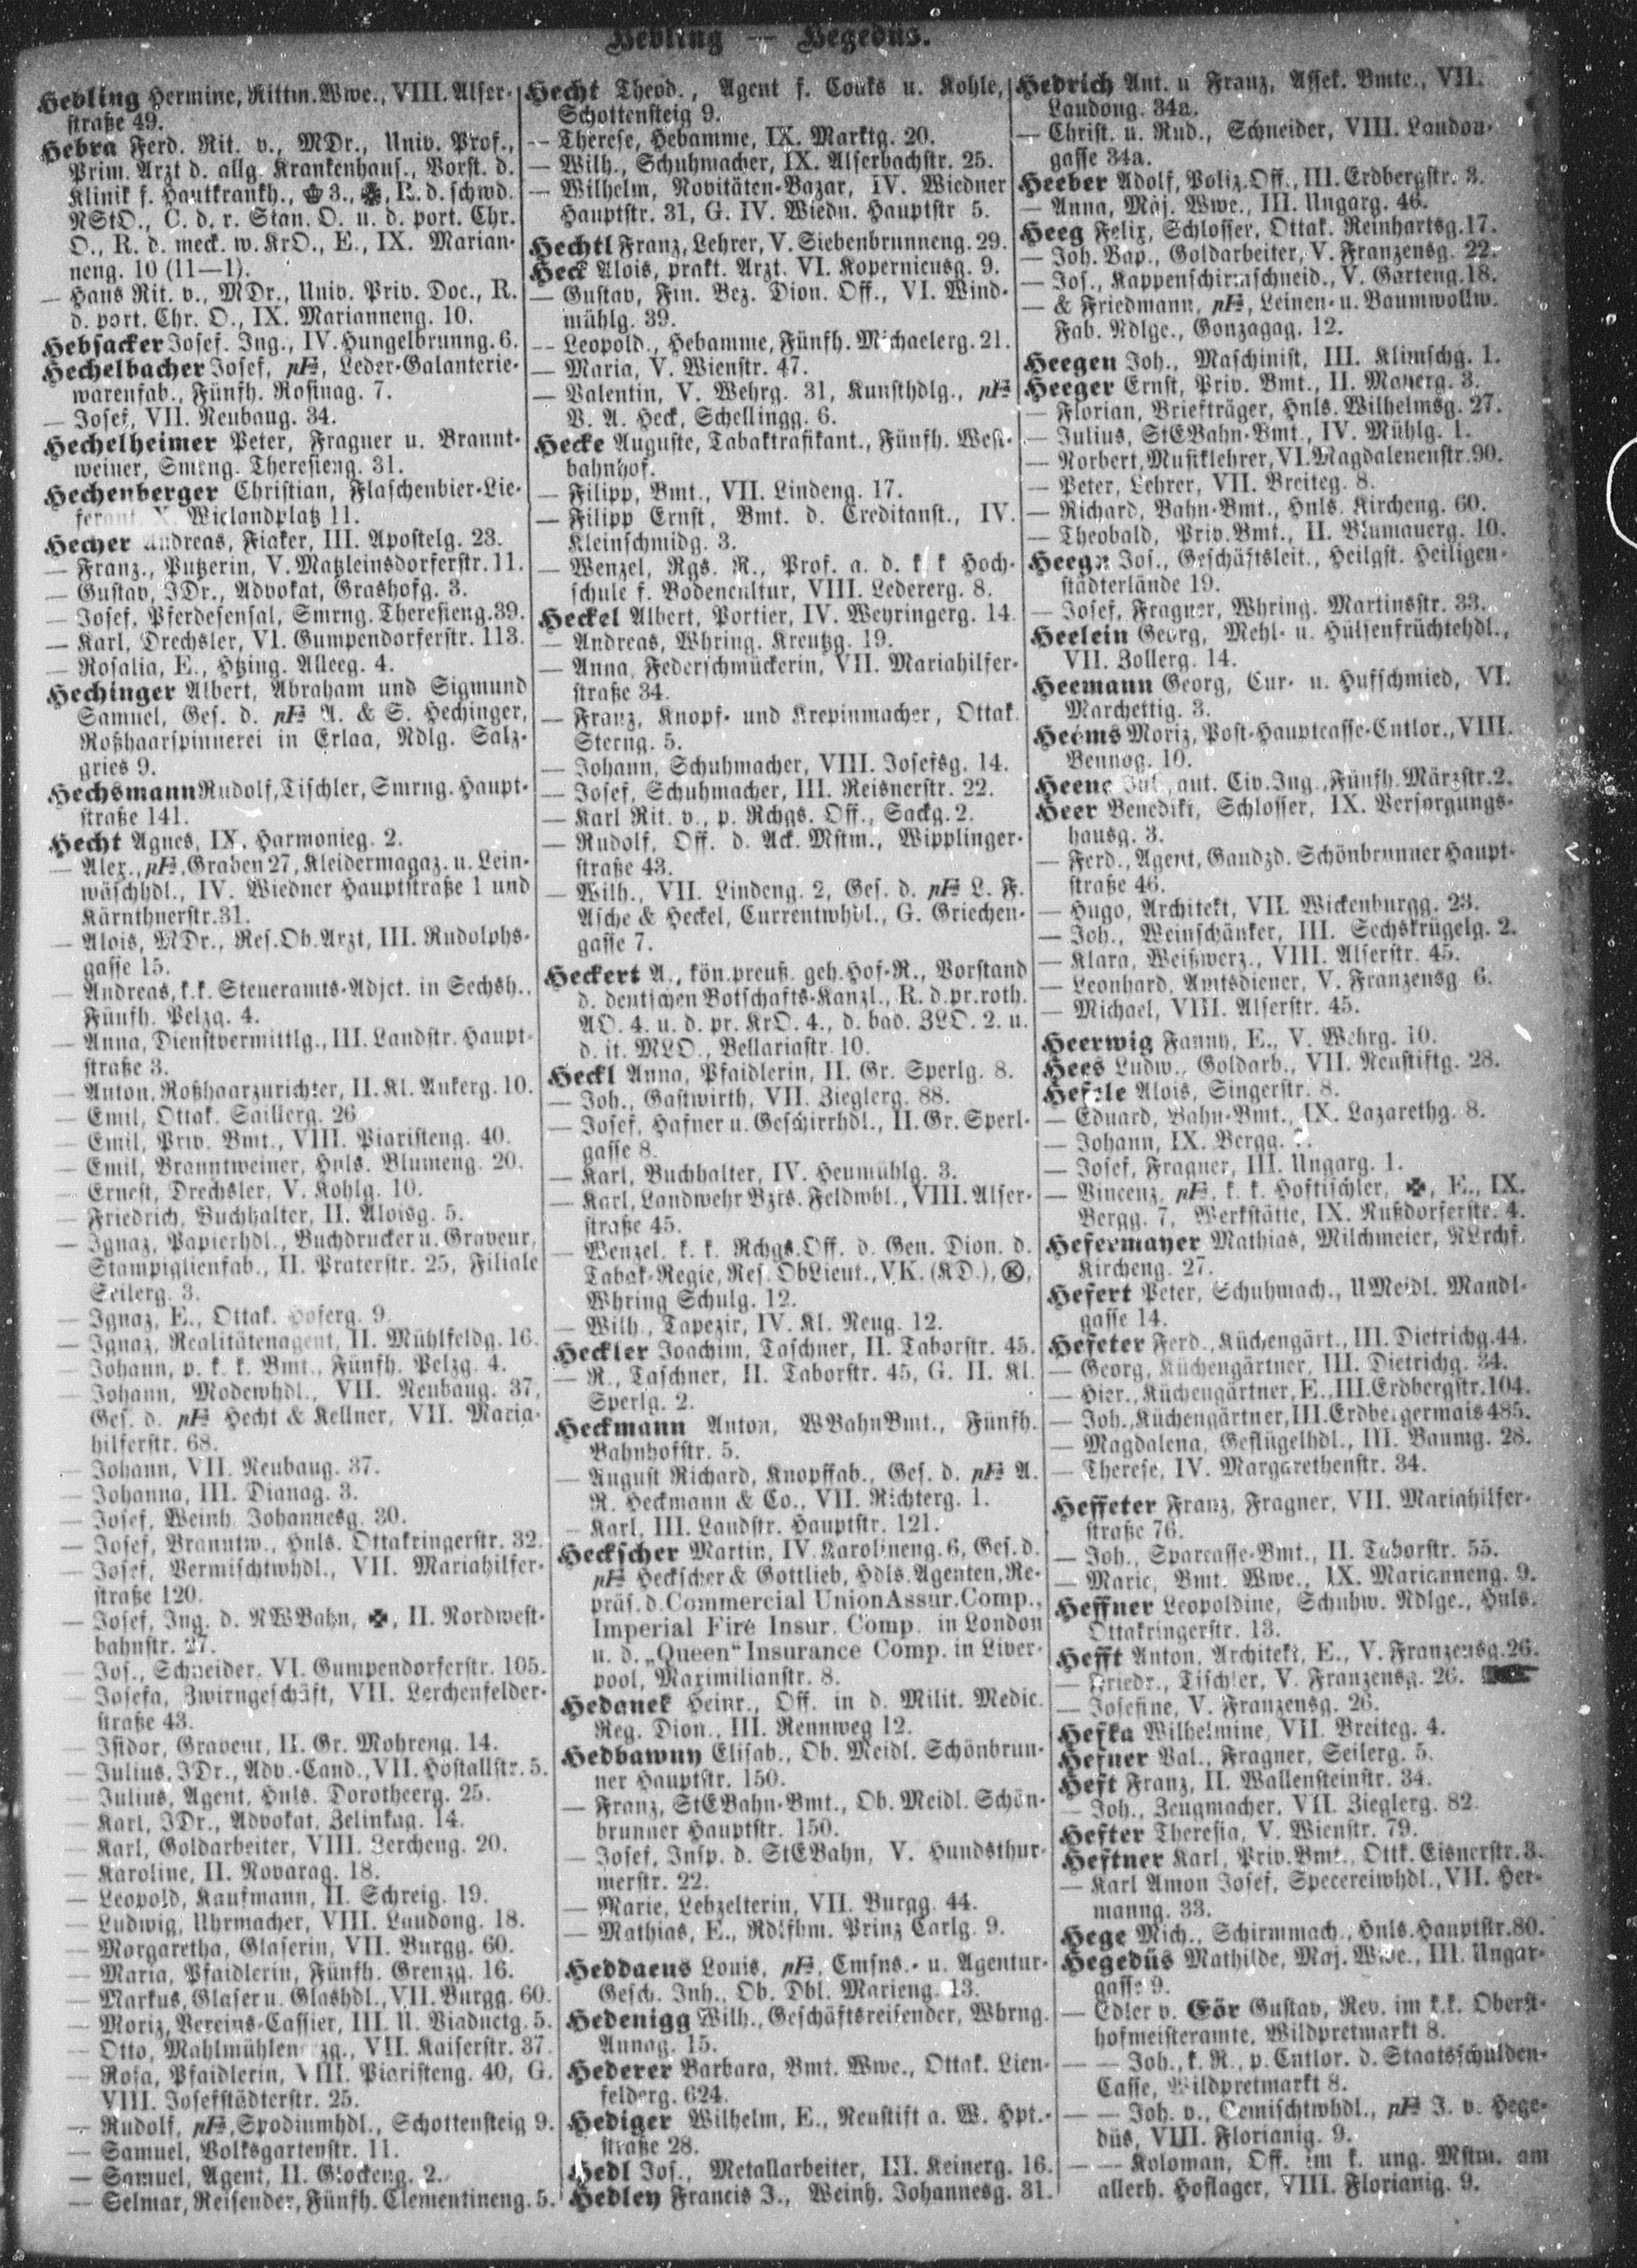 Hebling — Hegedüs.
Hebling Hermine, Rittm. Wwe., VIII. Alser-
straße 49.
Hebra Ferd. Rit. v., MDr., Univ. Prof.,
Prim. Arzt d. allg. Krankenhaus., Vorst. d.
Klinik f. Hautkrankh., 3., R. d. schwd.
NStO., C. d. r. Stan. O. u. d. port. Chr.
O., R. d. meck. w. KrO., E., IX. Marian-
neng. 10 (11—1).
— Hans Rit. v., MDr., Univ. Priv. Doc., R.
d. port. Chr. O., IX. Marianneng. 10.
Hebsacker Josef. Ing., IV. Hungelbrunng. 6.
Hechelbacher Josef, pF, Leder-Galanterie-
warenfab., Fünfh. Rosinag. 7.
— Josef, VII. Neubaug. 34.
Hechelheimer Peter, Fragner u. Brannt-
weiner, Smrng. Theresieng. 31.
Hechenberger Christian, Flaschenbier-Lie-
ferant X. Wielandplatz 11.
Hecher Andreas, Fiaker, III. Apostelg. 23.
— Franz., Putzerin, V. Matzleinsdorferstr. 11.
— Gustav, JDr., Advokat, Grashofg. 3.
— Josef, Pferdesensal, Smrng. Theresieng. 39.
— Karl, Drechsler, VI. Gumpendorferstr. 113.
— Rosalia, E., Htzing. Alleeg. 4.
Hechinger Albert, Abraham und Sigmund
Samuel, Ges. d. pF A. & S. Hechinger,
Roßhaarspinnerei in Erlaa, Ndlg. Salz-
gries 9.
Hechsmann Rudolf, Tischler, Smrng. Haupt-
straße 141.
Hecht Agnes, IX. Harmonieg. 2.
— Alex., pF, Graben 27, Kleidermagaz. u. Lein-
wäschhdl., IV. Wiedner Hauptstraße 1 und
Kärnthnerstr. 31.
— Alois, MDr., Res. Ob. Arzt, III. Rudolphs-
gasse 15.
— Andreas, k. k. Steueramts-Adjct. in Sechsh.,
Fünfh. Pelzg. 4.
— Anna, Dienstvermittlg., III. Landstr. Haupt-
straße 3.
— Anton, Roßhaarzurichter, II. Kl. Ankerg. 10.
— Emil, Ottak. Saillerg. 26
— Emil, Priv. Bmt., VIII. Piaristeng. 40.
— Emil, Branntweiner, Hnls. Blumeng. 20.
— Ernest, Drechsler, V. Kohlg. 10.
— Friedrich, Buchhalter, II. Aloisg. 5.
— Ignaz, Papierhdl., Buchdrucker u. Graveur,
Stampiglienfab., II. Praterstr. 25, Filiale
Seilerg. 3.
— Ignaz, E., Ottak. Hoferg. 9.
— Ignaz, Realitätenagent, II. Mühlfeldg. 16.
— Johann, p. k. k. Bmt., Fünfh. Pelzg. 4.
— Johann, Modewhdl., VII. Neubaug. 37,
Ges. d. pF Hecht & Kellner, VII. Maria-
hilferstr. 68.
— Johann, VII. Neubaug. 37.
— Johanna, III. Dianag. 3.
— Josef, Weinh. Johannesg. 30.
— Josef, Branntw., Hnls. Ottakringerstr. 32.
— Josef, Vermischtwhdl., VII. Mariahilfer-
straße 120.
— Josef, Ing. d. NWBahn, II. Nordwest-
bahnstr. 27.
— Jos., Schneider, VI. Gumpendorferstr. 105.
— Josefa, Zwirngeschäft, VII. Lerchenfelder-
straße 43.
— Isidor, Graveur, II. Gr. Mohreng. 14.
— Julius, JDr., Adv.-Cand., VII. Hofstallstr. 5.
— Julius, Agent, Hnls. Dorotheerg. 25.
— Karl, JDr., Advokat, Zelinkag. 14.
— Karl, Goldarbeiter, VIII. Lercheng. 20.
— Karoline, II. Novarag. 18.
— Leopold, Kaufmann, II. Schreig. 19.
— Ludwig, Uhrmacher, VIII. Laudong. 18.
— Morgaretha, Glaserin, VII. Burgg. 60.
— Maria, Pfaidlerin, Fünfh. Grenzg. 16.
— Markus, Glaser u. Glashdl., VII. Burgg. 60.
— Moriz, Vereins-Cassier, III. U. Viaductg. 5.
— Otto, VII. Kaiserstr. 37.
— Rosa, Pfaidlerin, VIII. Piaristeng. 40, G.
VIII. Josefstädterstr. 25.
— Rudolf, pF, Spodiumhdl., Schottensteig 9.
— Samuel, Volksgartenstr. 11.
— Samuel, Agent, II. Glockeng. 2.
— Selmar, Reisender, Fünfh. Clementineng. 5.
Hecht Theod., Agent f. Couks u. Kohle,
Schottensteig 9.
— Therese, Hebamme, IX. Marktg. 20.
— Wilh., Schuhmacher, IX. Alserbachstr. 25.
— Wilhelm, Novitäten-Bazar, IV. Wiedner
Hauptstr. 31, G. IV. Wiedn. Hauptstr 5.
Hechtl Franz, Lehrer, V. Siebenbrunneng. 29.
Heck Alois, prakt. Arzt. VI. Kopernicusg. 9.
— Gustav, Fin. Bez. Dion. Off., VI. Wind-
mühlg. 39.
— Leopold., Hebamme, Fünfh. Michaelerg. 21.
— Maria, V. Wienstr. 47.
— Valentin, V. Wehrg. 31, Kunsthdlg., pF
V. A. Heck, Schellingg. 6.
Hecke Auguste, Tabaktrafikant., Fünfh. West-
bahnhof.
— Filipp, Bmt., VII. Lindeng. 17.
— Filipp Ernst, Bmt. d. Creditanst., IV.
Kleinschmidg. 3.
— Wenzel, Rgs. R., Prof. a. d. k k Hoch-
schule f. Bodencultur, VIII. Ledererg. 8.
Heckel Albert, Portier, IV. Weyringerg. 14.
— Andreas, Whring. Kreutzg. 19.
— Anna, Federschmückerin, VII. Mariahilfer-
straße 34.
— Franz, Knopf- und Krepinmacher, Ottak.
Sterng. 5.
— Johann, Schuhmacher, VIII. Josefsg. 14.
— Josef, Schuhmacher, III. Reisnerstr. 22.
— Karl Rit. v., p. Rchgs. Off., Sackg. 2.
— Rudolf, Off. d. Ack. Mstm., Wipplinger-
straße 43.
— Wilh., VII. Lindeng. 2, Ges. d. pF L. F.
Asche & Heckel, Currentwhdl., G. Griechen-
gasse 7.
Heckert A., kön. preuß. geh. Hof-R., Vorstand
d. deutschen Botschafts-Kanzl., R. d. pr. roth.
AO. 4. u. d. pr. KrO. 4., d. bad. ZLO. 2. u.
d. it. MLO., Bellariastr. 10.
Heckl Anna, Pfaidlerin, II. Gr. Sperlg. 8.
— Joh., Gastwirth, VII. Zieglerg. 88.
— Josef, Hafner u. Geschirrhdl., II. Gr. Sperl-
gasse 8.
— Karl, Buchhalter, IV. Heumühlg. 3.
— Karl, Landwehr Bzks. Feldwbl., VIII. Alser-
straße 45.
— Wenzel, k. k. Rchgs. Off. d. Gen. Dion. d.
Tabak-Regie, Res. ObLieut., VK. (KD.), Ⓚ,
Whring Schulg. 12.
— Wilh., Tapezir, IV. Kl. Neug. 12.
Heckler Joachim, Taschner, II. Taborstr. 45.
— R., Taschner, II. Taborstr. 45, G. II. Kl.
Sperlg. 2.
Heckmann Anton, WBahnBmt., Fünfh.
Bahnhofstr. 5.
— August Richard, Knopffab., Ges. d. pF A.
R. Heckmann & Co., VII. Richterg. 1.
— Karl, III. Landstr. Hauptstr. 121.
Heckscher Martin, IV. Karolineng. 6, Ges. d.
pF Heckscher & Gottlieb, Hdls. Agenten, Re-
präs. d. Commercial Union Assur. Comp.,
Imperial Fire Insur. Comp. in London
u. d. „Queen“ Insurance Comp. in Liver-
pool, Maximilianstr. 8.
Hedanek Heinr., Off. in d. Milit. Medic.
Reg. Dion., III. Rennweg 12.
Hedbawny Elisab., Ob. Meidl. Schönbrun-
ner Hauptstr. 150.
— Franz, StEBahn-Bmt., Ob. Meidl. Schön-
brunner Hauptstr. 150.
— Josef, Insp. d. StEBahn, V. Hundsthur-
merstr. 22.
— Marie, Lebzelterin, VII. Burgg. 44.
— Mathias, E., Rdlfhm. Prinz Carlg. 9.
Heddaeus Louis, pF, Cmsns.- u. Agentur-
Gesch. Inh., Ob. Dbl. Marieng. 13.
Hedenigg Wilh., Geschäftsreisender, Whrng.
Annag. 15.
Hederer Barbara, Bmt. Wwe., Ottak. Lien-
felderg. 624.
Hediger Wilhelm, E., Neustift a. W. Hpt.-
straße 28.
Hedl Jos., Metallarbeiter, III. Keinerg. 16.
Hedley Francis J., Weinh. Johannesg. 31.
Hedrich Ant. u Franz, Assek. Bmte., VII.
Laudong. 34a.
— Christ. u. Rud., Schneider, VIII. Laudon-
gasse 34a.
Heeber Adolf, Poliz. Off., III. Erdbergstr. 3.
— Anna, Maj. Wwe., III. Ungarg. 46.
Heeg Felix, Schlosser, Ottak. Reinhartsg. 17.
— Joh. Bap., Goldarbeiter, V. Franzensg. 22.
— Jos., Kappenschirmschneid., V. Garteng. 18.
— & Friedmann, pF, Leinen- u. Baumwollw.
Fab. Ndlge., Gonzagag. 12.
Heegen Joh., Maschinist, III. Klimschg. 1.
Heeger Ernst, Priv. Bmt., II. Mayerg. 3.
— Florian, Briefträger, Hnls. Wilhelmsg. 27.
— Julius, StEBahn-Bmt., IV. Mühlg. 1.
— Norbert, Musiklehrer, VI. Magdalenenstr. 90.
— Peter, Lehrer, VII. Breiteg. 8.
— Richard, Bahn-Bmt., Hnls. Kircheng. 60.
— Theobald, Priv. Bmt., II. Blumauerg. 10.
Heegn Jos., Geschäftsleit., Heilgst. Heiligen-
städterlände 19.
— Josef, Fragner, Whring. Martinsstr. 33.
Heelein Georg, Mehl- u. Hülsenfrüchtehdl.,
VII. Zollerg. 14.
Heemann Georg, Cur- u. Hufschmied, VI.
Marchettig. 3.
Heems Moriz, Post-Hauptcasse-Cntlor., VIII.
Bennog. 10.
Heene Jul., aut. Civ. Ing., Fünfh. Märzstr. 2.
Heer Benedikt, Schlosser, IX. Versorgungs-
hausg. 3.
— Ferd., Agent, Gaudzd. Schönbrunner Haupt-
straße 46.
— Hugo, Architekt, VII. Wickenburgg. 23.
— Joh., Weinschänker, III. Sechskrügelg. 2.
— Klara, Weißwerz., VIII. Alserstr. 45.
— Leonhard, Amtsdiener, V. Franzensg 6.
— Michael, VIII. Alserstr. 45.
Heerwig Fanny, E., V. Wehrg. 10.
Hees Ludw., Goldarb., VII. Neustiftg. 28.
Hefele Alois, Singerstr. 8.
— Eduard, Bahn-Bmt., IX. Lazarethg. 8.
— Johann, IX. Bergg.
— Josef, Fragner, III. Ungarg. 1.
— Vincenz, pF, k. k. Hoftischler, E., IX.
Bergg. 7, Werkstätte, IX. Nußdorferstr. 4.
Hefermayer Mathias, Milchmeier, NLrchf.
Kircheng. 27.
Hefert Peter, Schuhmach., UMeidl. Mandl-
gasse 14.
Hefeter Ferd., Küchengärt., III. Dietrichg. 44.
— Georg, Küchengärtner, III. Dietrichg. 34.
— Hier., Küchengärtner, E., III. Erdbergstr. 104.
— Joh., Küchengärtner, III. Erdbergermais 485.
— Magdalena, Geflügelhdl., III. Baumg. 28.
— Therese, IV. Margarethenstr. 34.
Heffeter Franz, Fragner, VII. Mariahilfer-
straße 76.
— Joh., Sparcasse-Bmt., II. Taborstr. 55.
— Marie, Bmt. Wwe., IX. Marianneng. 9.
Heffner Leopoldine, Schuhw. Ndlge., Hnls.
Ottakringerstr. 13.
Hefft Anton, Architekt, E., V. Franzensg. 26.
— Friedr., Tischler, V. Franzensg. 26.
— Josefine, V. Franzensg. 26.
Hefka Wilhelmine, VII. Breiteg. 4.
Hefner Val., Fragner, Seilerg. 5.
Heft Franz, II. Wallensteinstr. 34.
— Joh., Zeugmacher, VII. Zieglerg. 82.
Hefter Theresia, V. Wienstr. 79.
Heftner Karl, Priv. Bmt., Ottk. Eisnerstr. 3.
— Karl Amon Josef, Specereiwhdl., VII. Her-
manng. 33.
Hege Mich., Schirmmach., Hnls. Hauptstr. 80.
Hegedüs Mathilde, Maj. Wwe., III. Ungar-
gasse 9.
— Edler v. Eör Gustav, Rev. im k. k. Oberst-
hofmeisteramte, Wildpretmarkt 8.
— — Joh., k. R., p. Cntlor. d. Staatsschulden-
Casse, Wildpretmarkt 8.
— — Joh. v., Gemischtwhdl., pF J. v. Hege-
düs, VIII. Florianig. 9.
— — Koloman, Off. im k. ung. Mstm. am
allerh. Hoflager, VIII. Florianig. 9.